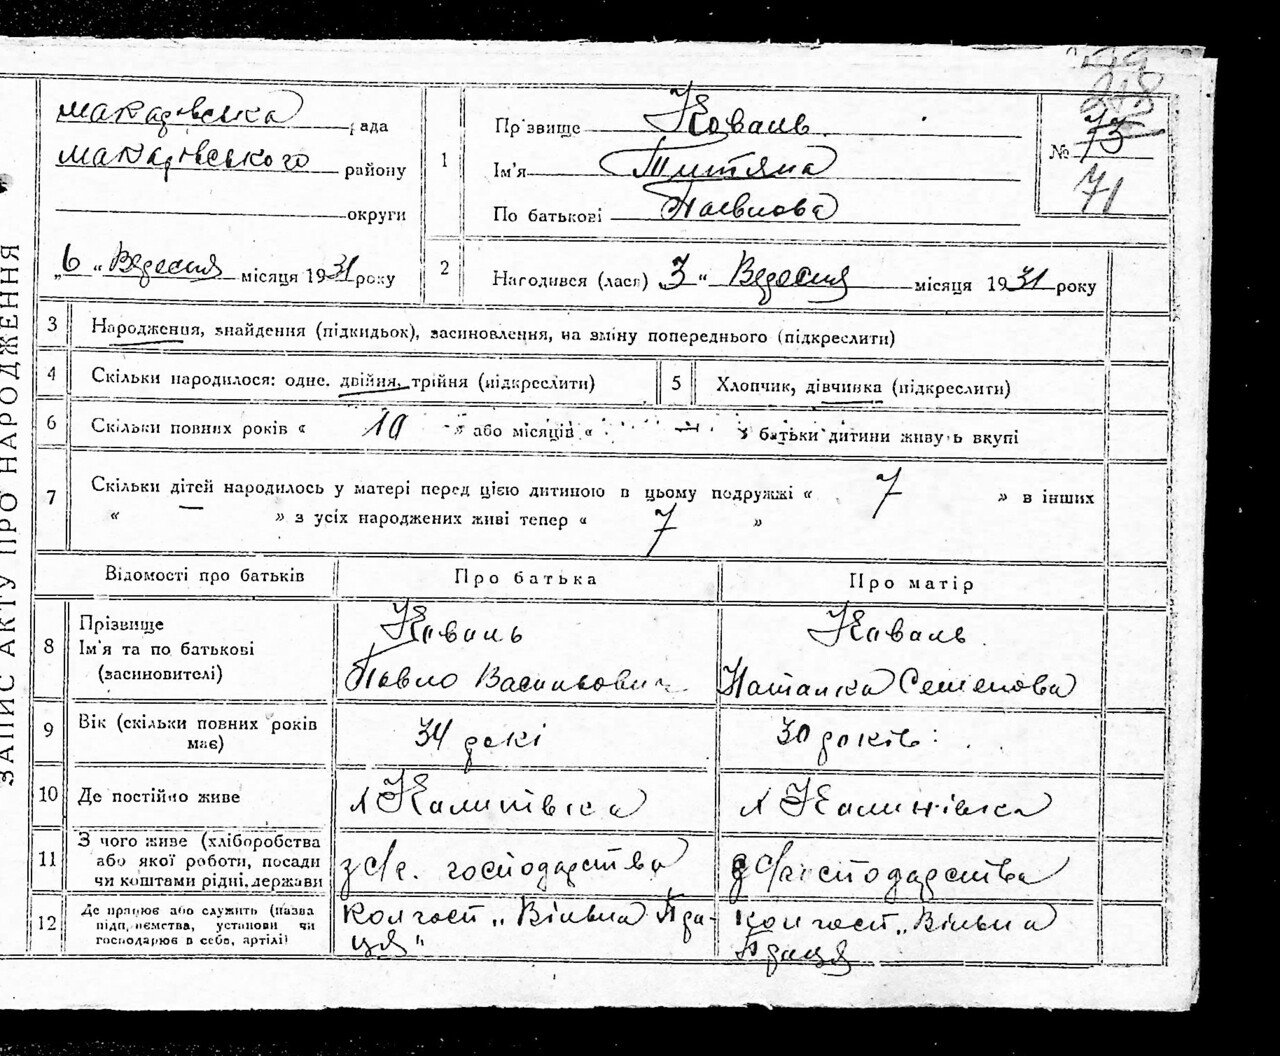 ЗАПИС АКТУ ПРО НАРОДЖЕННЯ
Макарівська рада
Макарівського району
округи
„6“ Вересня місяця 1931 року
1
Прізвище Коваль
Ім'я Титяна
По батькові Павлова
№ 73
71
218
2 Народився (лася) „3“ Вересня місяця 1931 року
3 Народження, знайдення (підкидьок), засиновлення, на зміну попереднього (підкреслити)
4 Скільки народилося: одне, двійня, трійня (підкреслити)
5 Хлопчик, дівчинка (підкреслити)
6 Скільки повних років « 10 » або місяців « — » батьки дитини живуть вкупі
7 Скільки дітей народилось у матері перед цією дитиною в цьому подружжі « 7 » в інших
« — » з усіх народжених живі тепер « 7 »
Відомості про батьків Про батька Про матір
8 Прізвище
Ім'я та по батькові
(засиновителі)
Коваль
Павло Васильович
Коваль
Наталка Семенова
9 Вік (скільки повних років
має)
34 рокі
30 років
10 Де постійно живе
х Калинівка
х Калинівка
11 З чого живе (хліборобства
або якої роботи, посади
чи коштами рідні, держави
з с/г. господарства
з с/господарства
12 Де працює або служить (назва
підприємства, установи чи
господарює в себе, артілі)
Колгосп „Вільна Пра-
ця“
Колгосп „Вільна
Праця